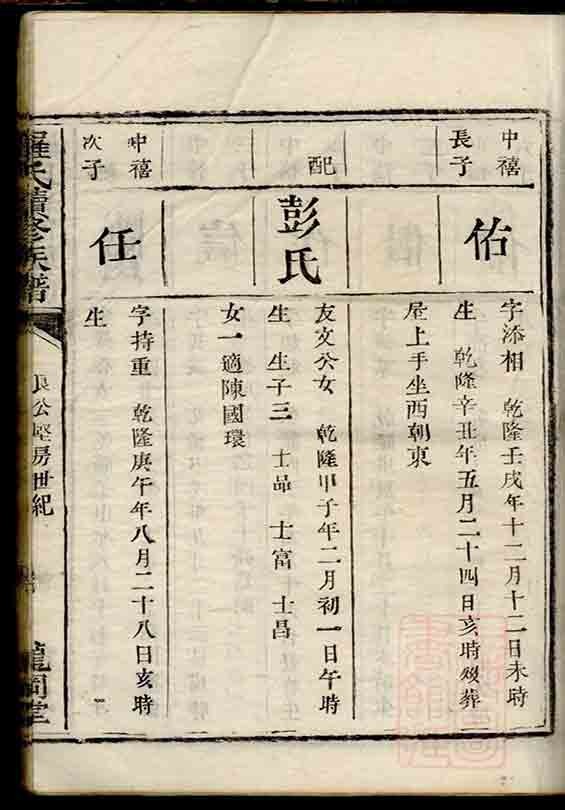 中禧
長子
佑
字添相 乾隆壬戌年十二月十二日未時
生 乾隆辛丑年五月二十四日亥時歿葬
屋上手坐西朝東
配
彭氏
友文公女 乾隆甲子年二月初一日午時
生 生子三 士昂 士富 士昌
女一適陳國環
中禧
次子
任
字持重 乾隆庚午年八月二十八日亥時
生
羅氏續修族譜
良公堅房世紀